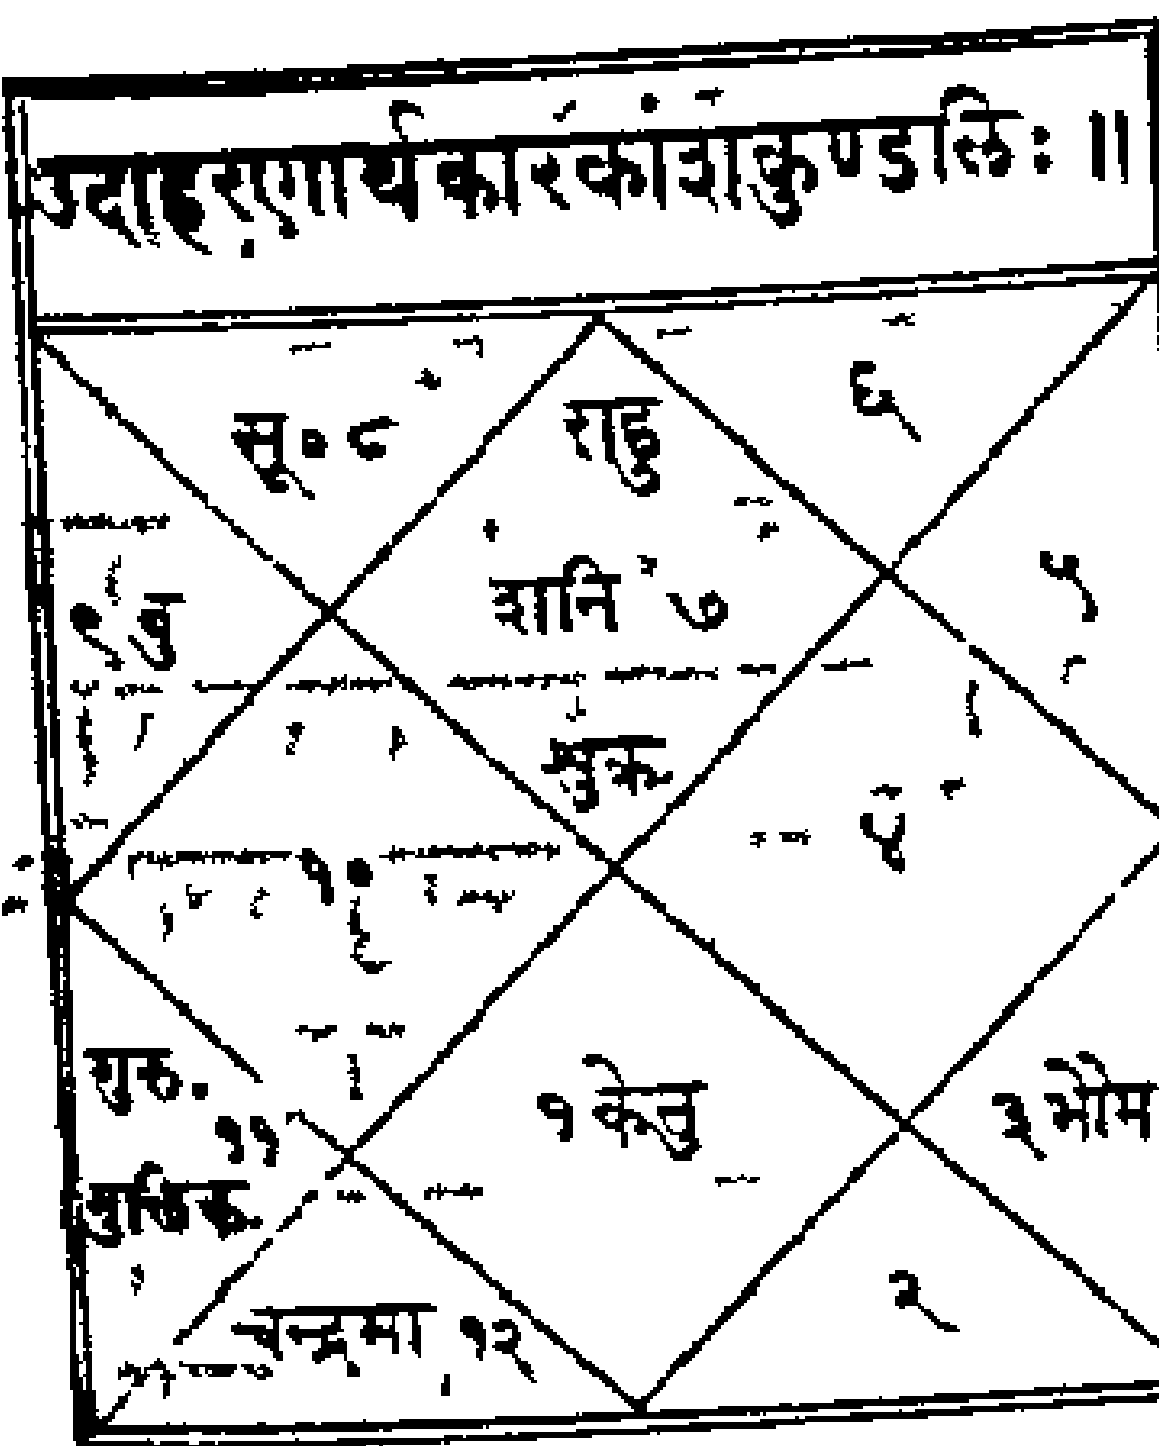 उदाहरणार्थ कारकांशकुण्डलिः ॥
सू० ८
राहु
६
शनि ७
५
९ बु
शुक्र
४
१०
गुरु.
११
गुलिक
१ केतु
३ भौम
चन्द्रमा १२
२